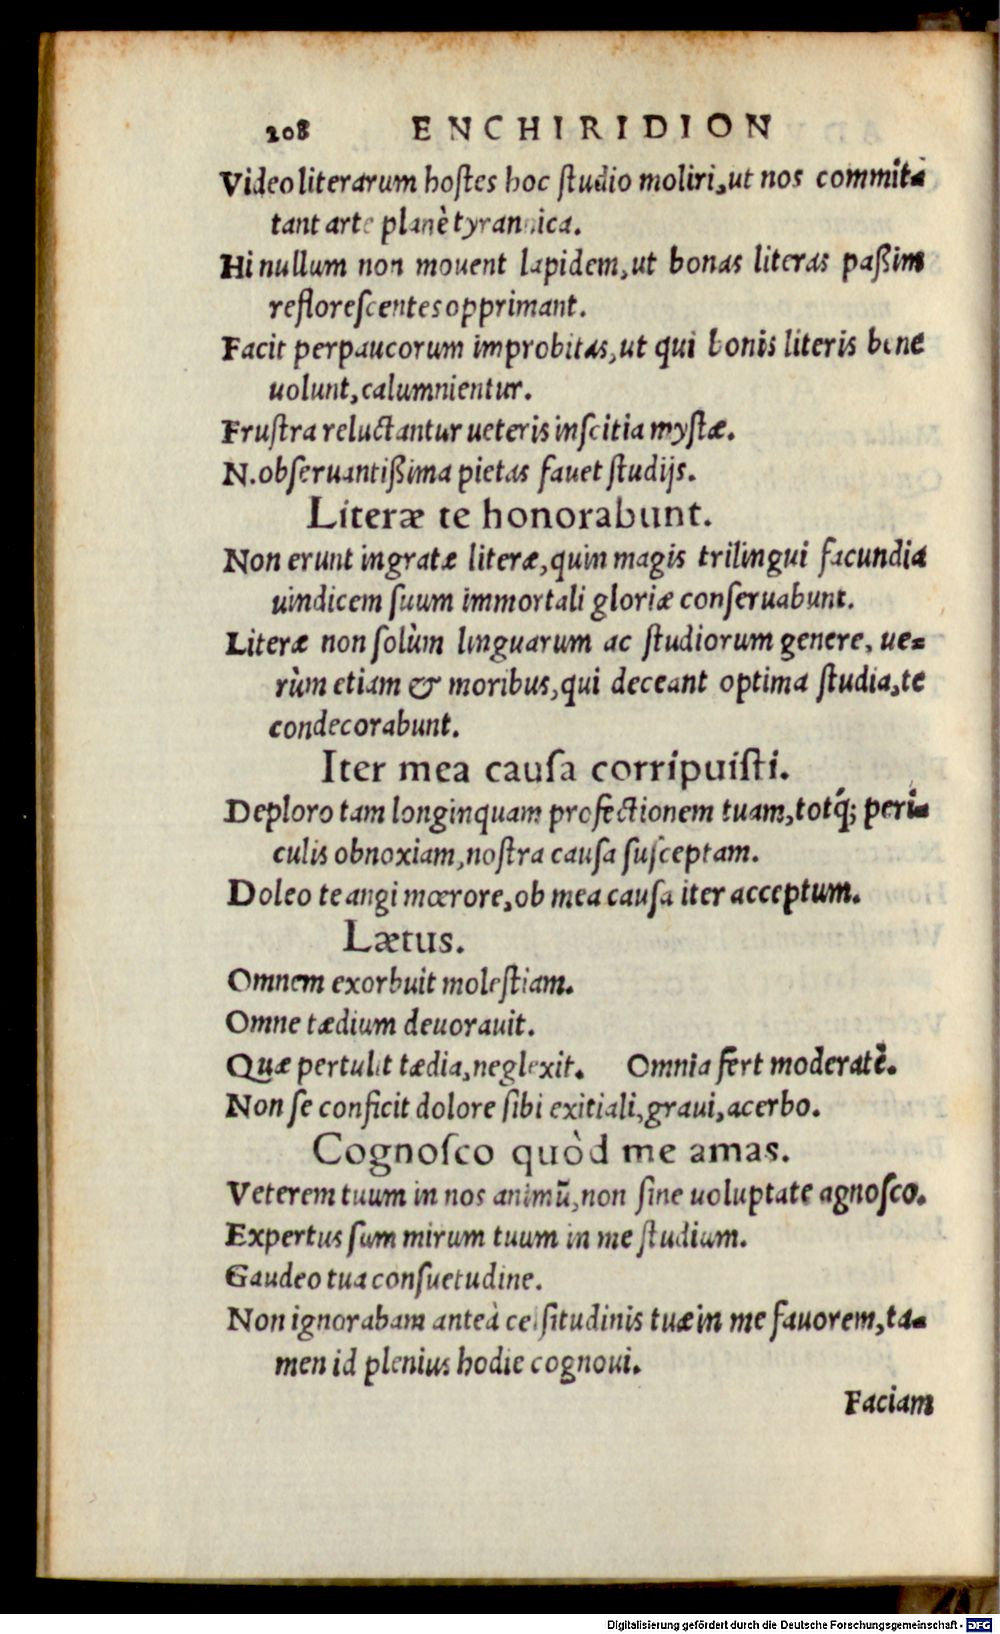 208 ENCHIRIDION
Video literarum hoſtes hoc ſtudio moliri, ut nos commit-
tant arte planè tyrannica.
Hi nullum non mouent lapidem, ut bonas literas paßim
refloreſcentes opprimant.
Facit perpaucorum improbitas, ut qui bonis literis bene
uolunt, calumnientur.
Fruſtra reluctantur ueteris inſcitia myſtæ.
N. obſeruantißima pietas fauet ſtudijs.
Literæ te honorabunt.
Non erunt ingratæ literæ, quin magis trilingui facundia
uindicem ſuum immortali gloriæ conſeruabunt.
Literæ non ſolùm linguarum ac ſtudiorum genere, ue-
rùm etiam & moribus, qui deceant optima ſtudia, te
condecorabunt.
Iter mea cauſa corripuiſti.
Deploro tam longinquam profectionem tuam, totq́; peri-
culis obnoxiam, noſtra cauſa ſuſceptam.
Doleo te angi mœrore, ob mea cauſa iter acceptum.
Lætus.
Omnem exorbuit moleſtiam.
Omne tædium deuorauit.
Quæ pertulit tædia, neglexit. Omnia fert moderatè.
Non ſe conficit dolore ſibi exitiali, graui, acerbo.
Cognoſco quòd me amas.
Veterem tuum in nos animū, non ſine uoluptate agnoſco.
Expertus ſum mirum tuum in me ſtudium.
Gaudeo tua conſuetudine.
Non ignorabam anteà celſitudinis tuæ in me fauorem, ta-
men id plenius hodie cognoui.
Faciam
Digitalisierung gefördert durch die Deutsche Forschungsgemeinschaft - DFG